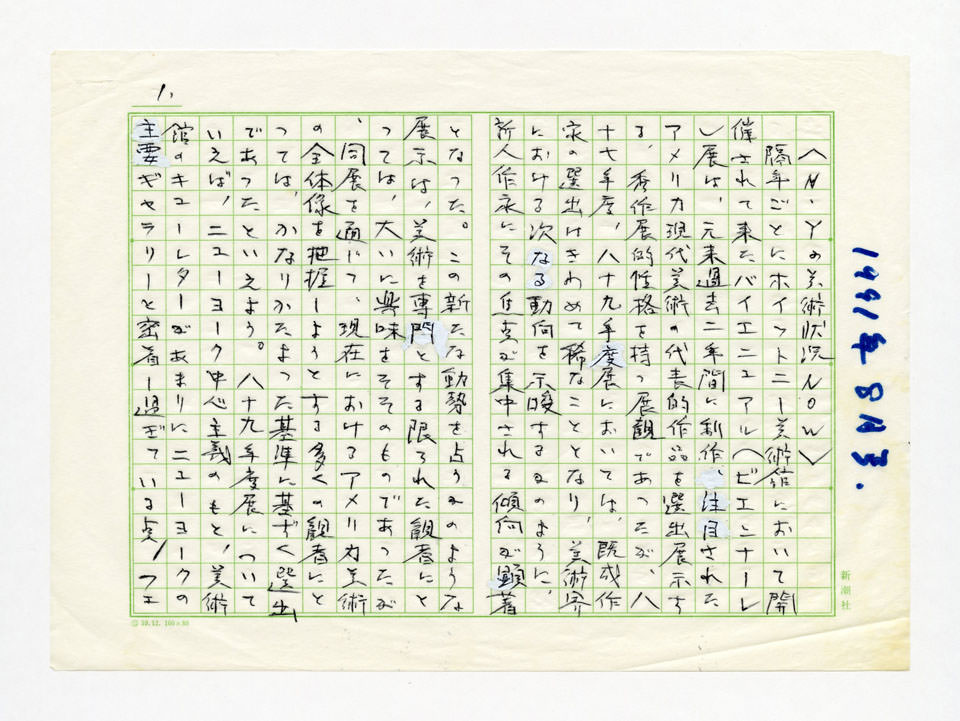 1991年8月号.
1.
<N・Yの美術状況NOW>
隔年ごとにホイットニー美術館において開
催されて来たバイエニュアル(ビエンナーレ
)展は、元来過去二年間に新作、注目された
アメリカ現代美術の代表的作品を選出展示す
る、秀作展的性格を持つ展観であったが、八
十七年度、八十九年度展においては、既成作
家の選出はきわめて稀なこととなり、美術界
における次なる動向を示唆するかのように、
新人作家にその焦点が集中される傾向が顕著
となった。この新たな動勢を占うかのような
展示は、美術を専門とする限られた観者にと
っては、大いに興味をそそのものであったが
、同展を通じて、現在におけるアメリカ美術
の全体像を把握しようとする多くの観者にと
っては、かなりかたよった基準に基ずく選出
であったといえよう。八十九年度展について
いえば、ニューヨーク中心主義のもと、美術
館のキューレターがあまりにニューヨークの
主要ギャラリーと密着し過ぎている点/フェ
新潮社